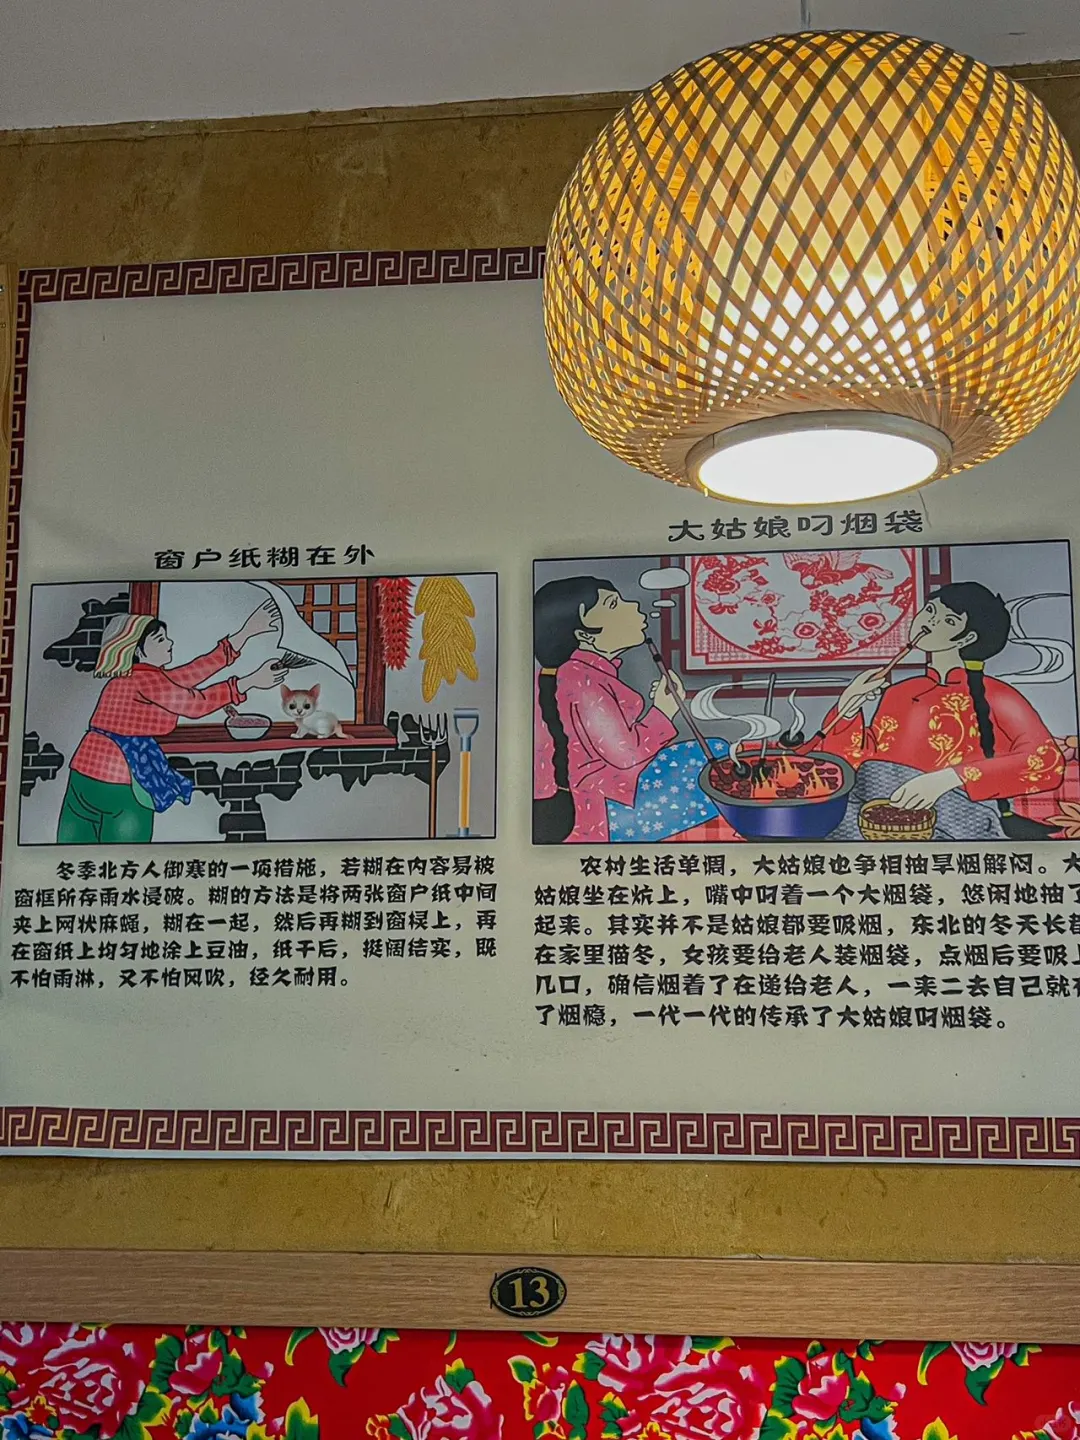 窗户纸糊在外
冬季北方人御寒的一项措施，若糊在内容易被
窗框所存雨水浸破。糊的方法是将两张窗户纸中间
夹上网状麻绳，糊在一起，然后再糊到窗棂上，再
在窗纸上均匀地涂上豆油，纸干后，挺阔结实，既
不怕雨淋，又不怕风吹，经久耐用。
大姑娘叼烟袋
农村生活单调，大姑娘也争相抽旱烟解闷。大
姑娘坐在炕上，嘴中叼着一个大烟袋，悠闲地抽了
起来。其实并不是姑娘都要吸烟，东北的冬天长都
在家里猫冬，女孩要给老人装烟袋，点烟后要吸上
几口，确信烟着了在递给老人，一来二去自己就有
了烟瘾，一代一代的传承了大姑娘叼烟袋。
13